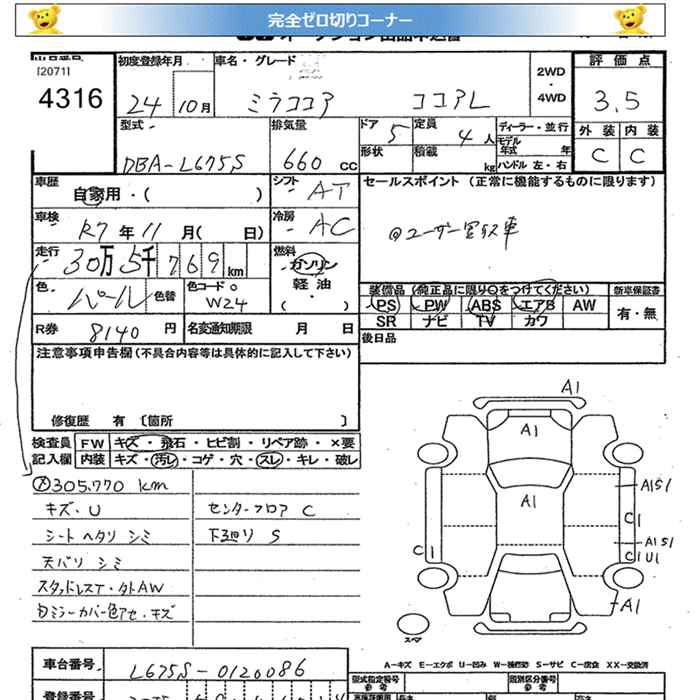 完全ゼロ切りコーナー
[2071]
4316
初度登録年月 車名・グレード 2WD・4WD 評価点
24 10月 ミラココア ココアL 3.5
外装 内装
C C
型式 排気量 ドア 定員 ディーラー・並行
DBA-L675S 660 CC 5 4人
形状 積載 kg モデル年式 年
ハンドル 左・右
車歴 シフト セールスポイント (正常に機能するものに限ります)
自家用・( ) AT
車検 冷房
R7年 11月( 日) AC
@ユーザー買取車
走行 燃料
30万5千769km ガソリン・軽油・( )
色 色替 色コードNo
パール W24
装備品 (純正品に限り○をつけてください) 新車保証書
PS PW ABS エアB AW 有・無
SR ナビ TV カワ
R券 8140円 名変通知期限 月 日
後日品
注意事項申告欄(不具合内容等は具体的に記入して下さい)
修復歴 有 〔箇所 〕
検査員記入欄
FW キズ・飛石・ヒビ割・リペア跡・×要
内装 キズ・汚レ・コゲ・穴・スレ・キレ・破レ
305,770 km
キズ・U センターフロア C
シートヘタリ シミ 下廻り S
天バリ シミ
スタッドレスT・外AW
ミラーカバー色アセ・キズ
A1
A1
A1
A1S1
C1
A1S1
C1 C1U1
A1
スペア
車台番号 L675S-0120086
A-キズ E-エクボ U-凹み W-補修跡 S-サビ C-腐食 XX-交換済
型式指定番号 類別区分番号
参考 参考
登録番号